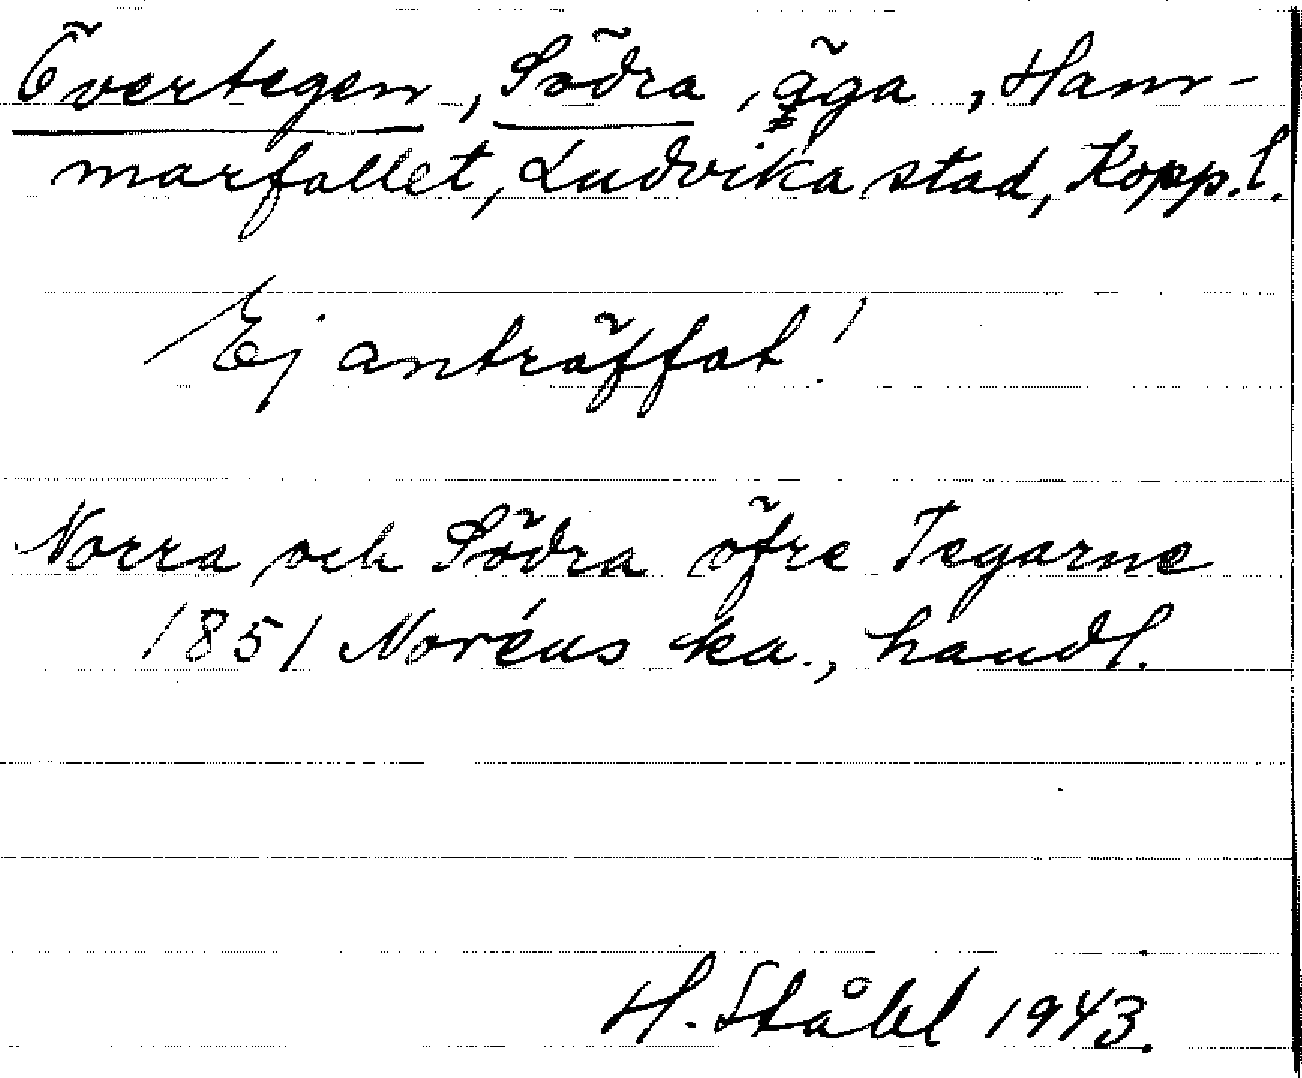 Övertegen, Södra, äga, Ham-
marfallet, Ludvika stad, Kopp.l.
Ej anträffat!
Norra och Södra öfre Tegarne
1851 Noréns ka., handl.
H. Ståhl 1943.